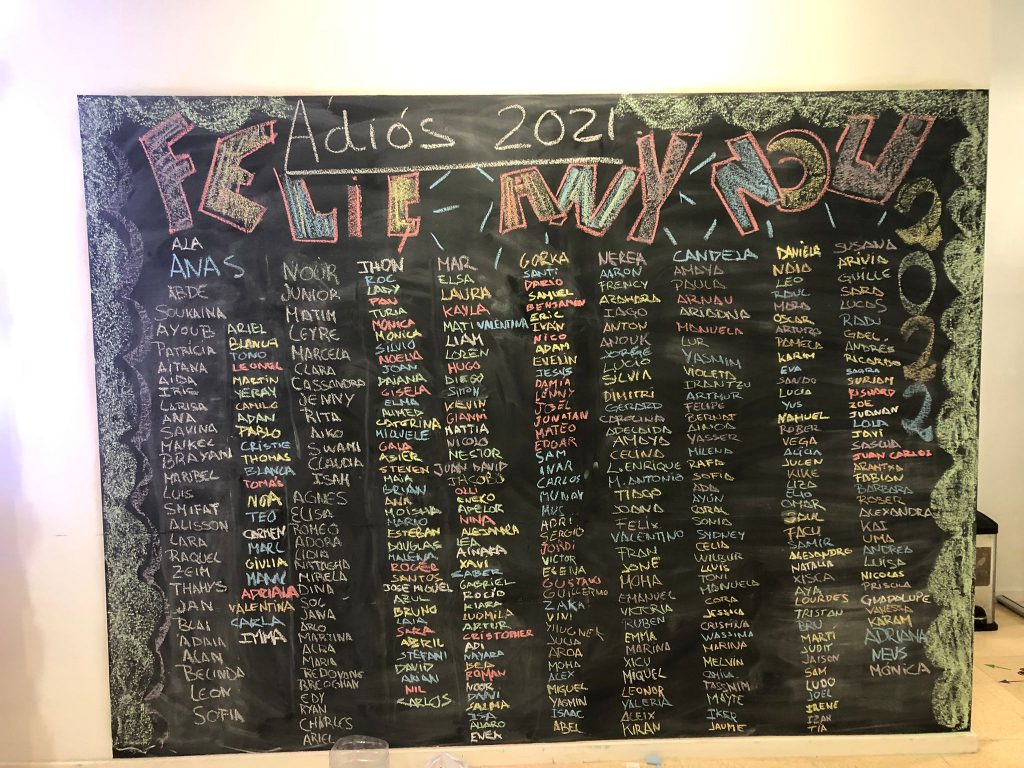 Adiós 2021
FELIÇ ANY NOU
2022
ALA
ANAS
ABDE
SOUKAINA
AYOUB
PATRICIA
AITANA
AIDA
IRIE
LARISA
ANA
SAVINA
MAIKEL
BRAYAN
MARIBEL
LUIS
SHIFAT
ALISSON
LARA
RAQUEL
ZEIM
THAVYS
JAN
BLAI
ADAIA
ALAN
BELINDA
LEON
SOFIA
ARIEL
BLANCA
TONO
LEONEL
MARTIN
YERAY
CAMILO
ADAM
PABLO
CRISTIE
THOMAS
BLANCA
TOMAS
NOA
TEO
CARMEN
MARC
GIULIA
ADRIANA
VALENTINA
CARLA
IMMA
NOUR
JUNIOR
MATIM
LEYRE
MARCELA
CLARA
CASSANDRA
JENNY
RITA
AIKO
SWAMI
CLAUDIA
ISAH
AGNES
ELISA
ROMEO
ADORA
LIDIA
NATASHA
MIRELA
DINA
SOL
JANA
ARO
MARTINA
ALBA
MARIA
REDOUANE
BREOGHAN
EDY
RYAN
CHARLES
ARIEL
JHON
ROC
LADY
PAU
TURIA
MONICA
MONICA
SILVIO
NOELIA
JOAN
DAIANA
GISELA
ELMA
AHMED
CATERINA
MIQUELE
GALA
ASIER
STEVEN
MAIA
BRIAN
ANA
MOISHA
MARIO
ESTEBAN
DOUGLAS
MALENA
ROGER
SANTOS
JOSE MIGUEL
AZUL
BRUNO
LAIA
SARA
ABRIL
STEFANI
DAVID
ARIAN
NIL
CARLOS
MAR
ELSA
LAURA
KAYLA
MATI VALENTINA
LIAM
LOREN
HUGO
DIEGO
SIMON
KEVIN
GIANNI
MATTIA
NICOLO
NESTOR
JUAN DAVID
JACOBO
OLLI
ENEKO
APELOR
NINA
ALEJANDRA
LEA
AINARA
XAVI
SABER
GABRIEL
ROCIO
KIARA
LUDMILA
ARTUR
CRISTOPHER
ADI
NAYARA
BEA
ROMAN
NOOR
DANI
SALMA
ISA
ALVARO
ENEA
GORKA
SANTI
DARIO
SAMUEL
BENJAMIN
ERIC
IVAN
NICO
ADAM
EVELIN
JESUS
DAMIA
LENNY
JOEL
JONATAN
MATEO
EDGAR
SAM
INAR
CARLOS
MUNAY
MUS
ADRI
SERGIO
JORDI
VICTOR
EGEINA
GUSTAVO
GUILLERMO
ZAKA
VINI
MUGNEK
JULIA
AROA
MOHA
ALEX
MIGUEL
YASMIN
ISAAC
ABEL
NEREA
AARON
FRENCY
AZAHARA
IAGO
ANTON
ANOUK
JORGE
LUCIA
SILVIA
DIMITRI
GERARD
CAROLINA
ADELAIDA
AMAYA
CELINA
L. ENRIQUE
M. ANTONIO
TIAGO
JOANA
FELIX
VALENTINO
FRAN
JONE
MOHA
EMANUEL
VIKTORIA
RUBEN
EMMA
MARINA
XICU
MIQUEL
LEONOR
VALERIA
ALEIX
KIRAN
CANDELA
AMAYA
PAULA
ARNAU
ARIADNA
MANUELA
LUR
YASMIN
VIOLETA
IRANTZU
ARTHUR
FELIPE
BERNAT
AINOA
YASSER
MILENA
RAFA
SOFIA
ADA
AYUN
CORAL
SONIA
SYDNEY
CELIA
WILBUR
LLUIS
TONI
MANUELA
CORA
JESSICA
CRISTINA
WASSIMA
MARINA
MELVIN
JAMILA
TASSNIM
MAYTE
IKER
JAUME
DANIELA
NOIA
LEO
RAUL
MARA
OSCAR
ARTURO
PAMELA
KARIM
EVA
SANDO
LUCIA
YUS
NAHUEL
ROBER
VEGA
ALICIA
JULEN
KIKE
LIZA
ELIO
OMAR
JUAN
FACU
SAMIR
ALEXANDRE
NATALIA
XISCA
AYA
LOURDES
TRISTAN
BRU
MARTI
JUDIT
JAISON
SAM
LUDO
JOEL
IRENE
IZAN
TIA
SUSANA
ARIVIA
GUILLE
SARA
LUCAS
RADU
FIDEL
ANDRES
RICARDO
SAGRA
SURIAM
RISHORD
ZOE
JUDNAN
LOLA
JAVI
PASCUAL
JUAN CARLOS
ARANTXA
FABIAN
BARBARA
ROSER
ALEXANDRA
KAI
UMA
ANDREA
LUISA
NICOLAS
PRISCILA
GUADALUPE
VANESSA
KARAM
ADRIANA
NEUS
MÓNICA